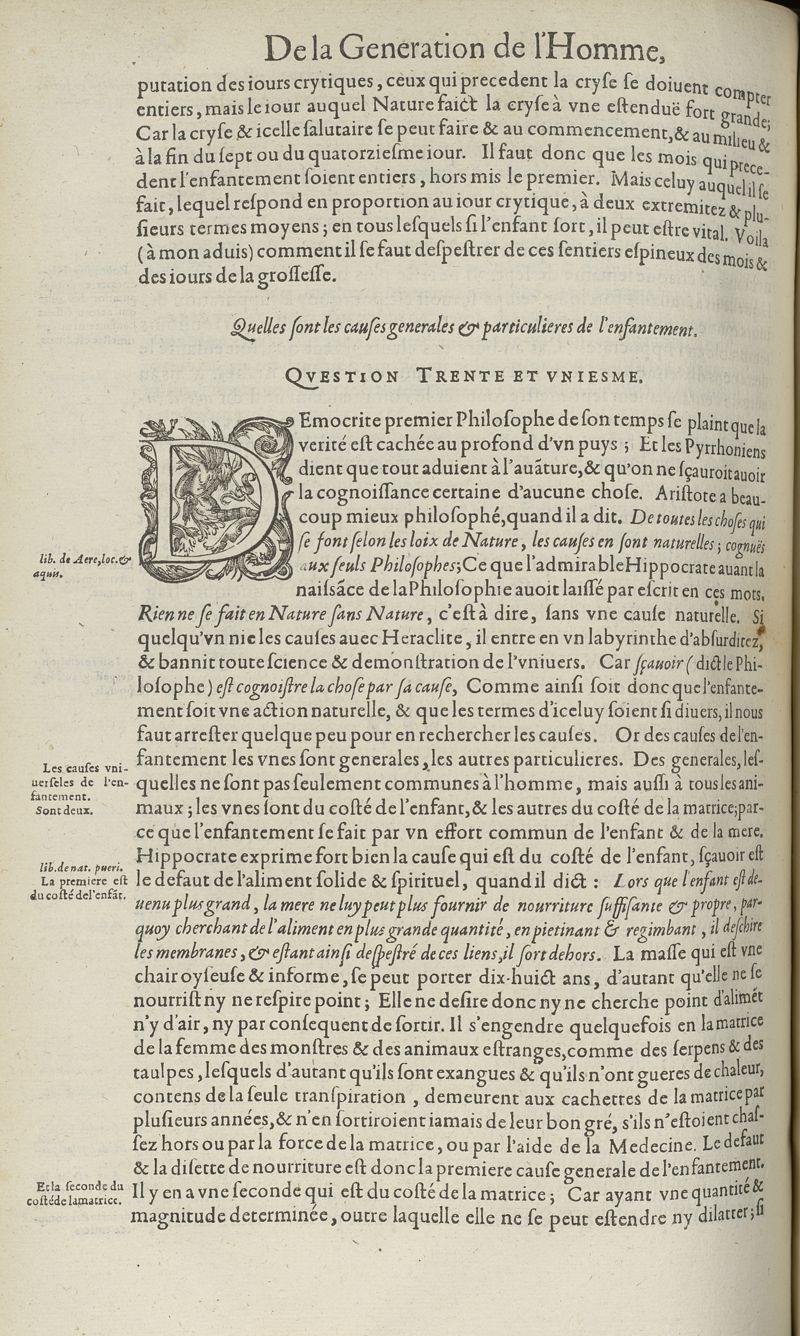 De la Generation de l'Homme,
putation des iours crytiques, ceux qui precedent la cryse se doiuent compter
entiers, mais le iour auquel Nature faict la cryse à vne estenduë fort grande;
Car la cryse & icelle salutaire se peut faire & au commencement, & au milieu &
à la fin du sept ou du quatorziesme iour. Il faut donc que les mois qui prece-
dent l'enfantement soient entiers, hors mis le premier. Mais celuy auquel il se
fait, lequel respond en proportion au iour crytique, à deux extremitez & plu-
sieurs termes moyens; en tous lesquels si l'enfant sort, il peut estre vital. Voila
(à mon aduis) comment il se faut despestrer de ces sentiers espineux des mois &
des iours de la grossesse.
Quelles sont les causes generales & particulieres de l'enfantement.
QVESTION TRENTE ET VNIESME.
DEmocrite premier Philosophe de son temps se plaint que la
verité est cachée au profond d'vn puys; Et les Pyrrhoniens
dient que tout aduient à l'auãture, & qu'on ne sçauroit auoir
la cognoissance certaine d'aucune chose. Aristote a beau-
coup mieux philosophé, quand il a dit. De toutes les choses qui
se font selon les loix de Nature, les causes en sont naturelles; cognuës
lib. de Aere, loc. &
aquis.
aux seuls Philosophes; Ce que l'admirable Hippocrate auant la
naissãce de la Philosophie auoit laissé par escrit en ces mots,
Rien ne se fait en Nature sans Nature, c'est à dire, sans vne cause naturelle. Si
quelqu'vn nie les causes auec Heraclite, il entre en vn labyrinthe d'absurditez,
& bannit toute science & demonstration de l'vniuers. Car sçauoir (dict le Phi-
losophe) est cognoistre la chose par sa cause, Comme ainsi soit donc que l'enfante-
ment soit vne action naturelle, & que les termes d'iceluy soient si diuers, il nous
faut arrester quelque peu pour en rechercher les causes. Or des causes de l'en-
fantement les vnes sont generales, les autres particulieres. Des generales, les-
Les causes vni-
uerseles de l'en-
fantement.
Sont deux.
quelles ne sont pas seulement communes à l'homme, mais aussi à tous les ani-
maux; les vnes sont du costé de l'enfant, & les autres du costé de la matrice; par-
ce que l'enfantement se fait par vn effort commun de l'enfant & de la mere.
Hippocrate exprime fort bien la cause qui est du costé de l'enfant, sçauoir est
lib. de nat. pueri.
La premiere est
du costé de l'enfãt.
le defaut de l'aliment solide & spirituel, quand il dict : Lors que l'enfant est de-
uenu plus grand, la mere ne luy peut plus fournir de nourriture suffisante & propre, par-
quoy cherchant de l'aliment en plus grande quantité, en pietinant & regimbant, il deschire
les membranes, & estant ainsi despestré de ces liens, il sort dehors. La masse qui est vne
chair oyseuse & informe, se peut porter dix-huict ans, d'autant qu'elle ne se
nourrist ny ne respire point; Elle ne desire donc ny ne cherche point d'alimẽt
n'y d'air, ny par consequent de sortir. Il s'engendre quelquefois en la matrice
de la femme des monstres & des animaux estranges, comme des serpens & des
taulpes, lesquels d'autant qu'ils sont exangues & qu'ils n'ont gueres de chaleur,
contens de la seule transpiration, demeurent aux cachettes de la matrice par
plusieurs années, & n'en sortiroient iamais de leur bon gré, s'ils n'estoient chas-
sez hors ou par la force de la matrice, ou par l'aide de la Medecine. Le defaut
& la disette de nourriture est donc la premiere cause generale de l'enfantement.
Et la seconde du
costé de la matrice.
Il y en a vne seconde qui est du costé de la matrice; Car ayant vne quantité &
magnitude determinée, outre laquelle elle ne se peut estendre ny dilatter; si